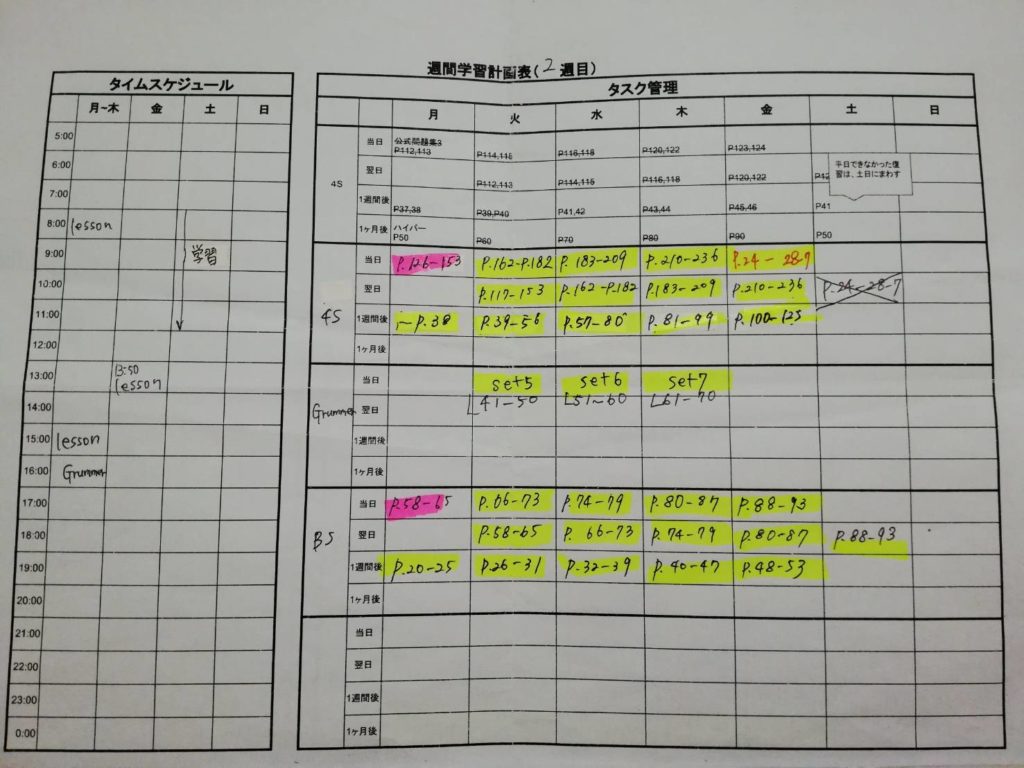 週間学習計画表(2週目)
タイムスケジュール
月~木 金 土 日
5:00
6:00
7:00
8:00 lesson
9:00 学習
10:00
11:00
12:00
13:00 13:50 lesson
14:00
15:00 lesson
16:00 Grummer
17:00
18:00
19:00
20:00
21:00
22:00
23:00
0:00
タスク管理
月 火 水 木 金 土 日
4S
当日 公式問題集3
P112,113 P114,115 P116,118 P120,122 P123,124
翌日 P112,113 P114,115 P116,118 P120,122
平日できなかった復
習は、土日にまわす
1週間後 P37,38 P39,P40 P41,42 P43,44 P45,46 P41
1ヶ月後 ハイパー
P50 P60 P70 P80 P90 P50
4S
当日 P.126-153 P.162-P.182 P.183-209 P.210-236 P.24-28-7
翌日 P.117-153 P.162-P.182 P.183-209 P.210-236 P.24-28-7
1週間後 ~P.38 P.39-56 P.57-80 P.81-99 P.100-125
1ヶ月後
Grummer
当日 set5 set6 set7
翌日 41-50 51~60 61-70
1週間後
1ヶ月後
BS
当日 P.58-65 P.66-73 P.74-79 P.80-87 P.88-93
翌日 P.58-65 P.66-73 P.74-79 P.80-87 P.88-93
1週間後 P.20-25 P.26-31 P.32-39 P.40-47 P.48-53
1ヶ月後
当日
翌日
1週間後
1ヶ月後